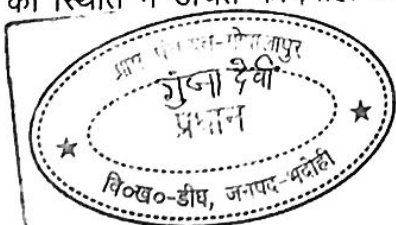 की स्थिति में उचित
ग्राम पंचायत-गोपालापुर
गुंजा देवी
प्रधान
वि०ख०-डीघ, जनपद-भदोही